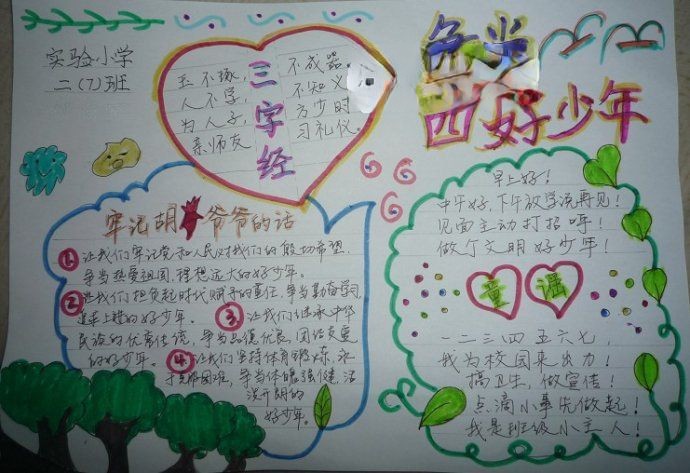 实验小学
二(7)班
三字经
玉不琢,不成器。
人不学,不知义
为人子,方少时
亲师友 习礼仪。
争当
四好少年
牢记胡爷爷的话
1.让我们牢记党和人民对我们的殷切希望,
争当热爱祖国,理想远大的好少年。
2 让我们担负起时代赋予的重任,争当勤奋学习
追求上进的好少年。3 让我们继承中华
民族的优常传统,争当品德优良,团结友爱
的好少年。4 让我们坚持体育锻炼,
困难,争当体魄强健,活
泼开朗的
好少年。
早上好!
中午好,下午放学说再见!
见面主动打招呼!
做个文明好少年!
童谣
一二三四五六七,
我为校园来出力!
搞卫生,做宣传!
点滴小事先做起!
我是班级小主人!